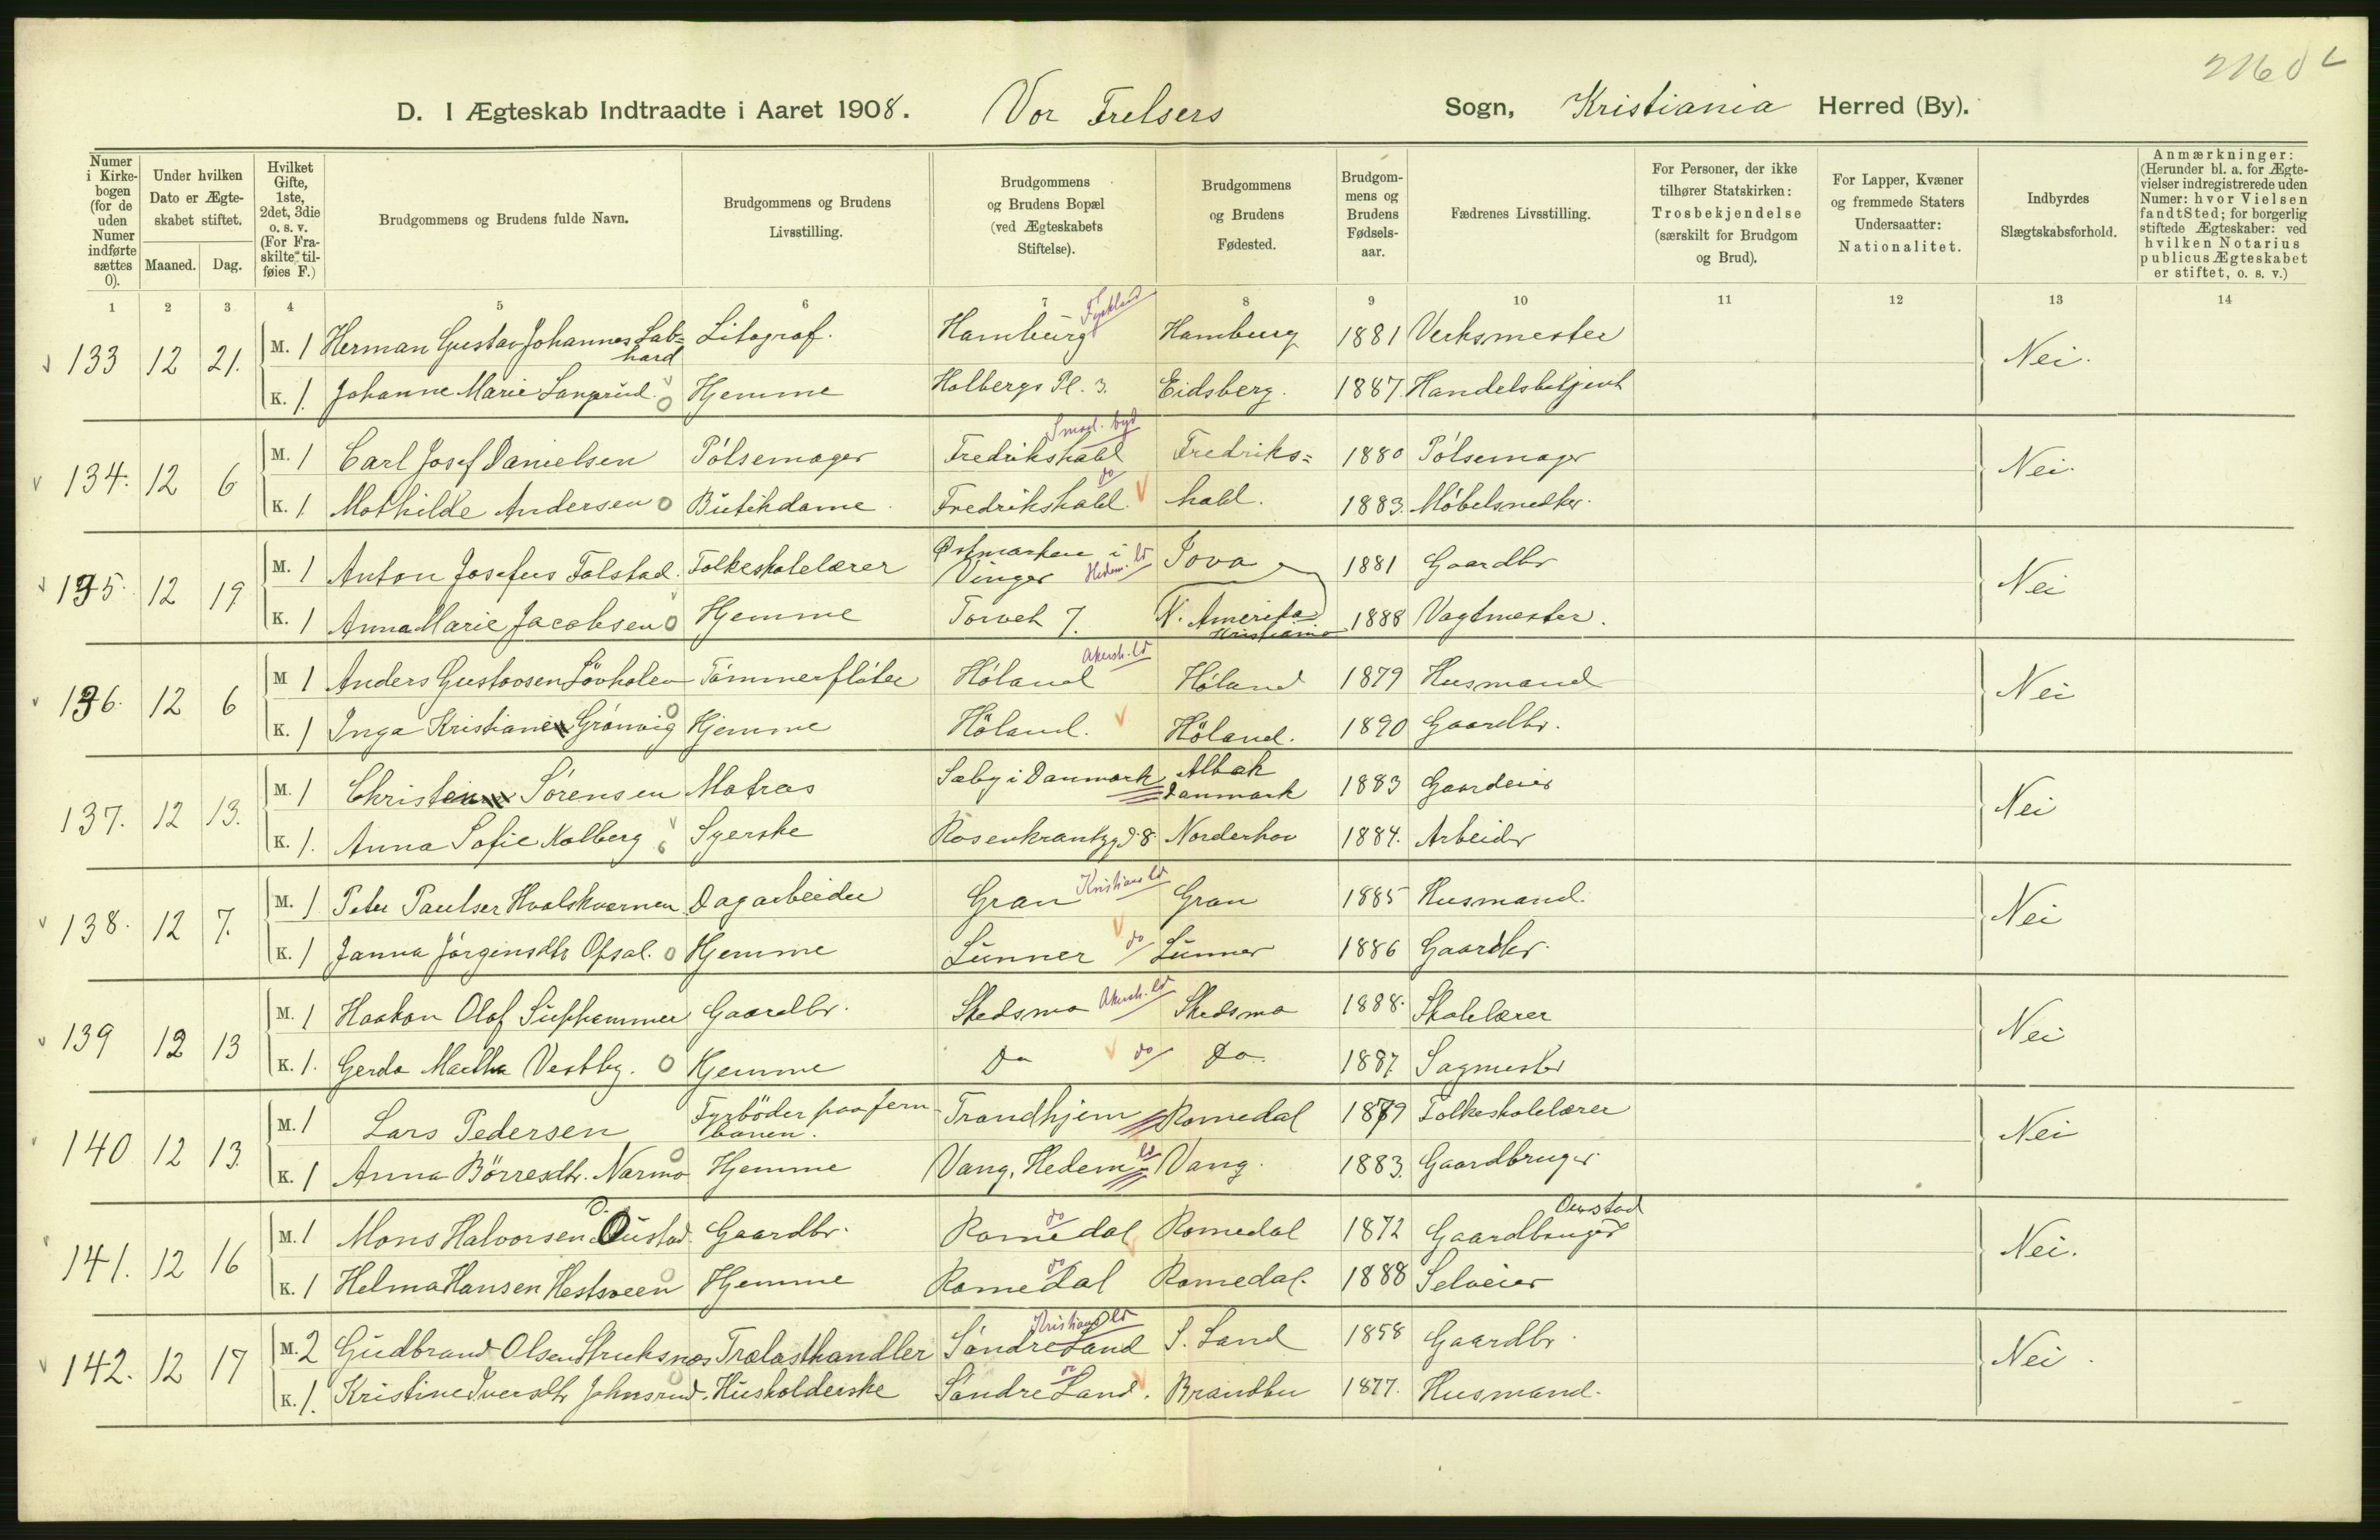 D. I Ægteskab Indtraadte i Aaret 1908. Vor Frelsers Sogn, Kristiania Herred (By).
Numer i Kirkebogen (for de uden Numer indførte sættes 0).
Under hvilken Dato er Ægteskabet stiftet.
Maaned. Dag.
Hvilket Gifte, 1ste, 2det, 3die o. s. v. (For Fraskilte tilføies F.)
Brudgommens og Brudens fulde Navn.
Brudgommens og Brudens Livsstilling.
Brudgommens og Brudens Bopæl (ved Ægteskabets Stiftelse).
Brudgommens og Brudens Fødested.
Brudgommens og Brudens Fødselsaar.
Fædrenes Livsstilling.
For Personer, der ikke tilhører Statskirken: Trosbekjendelse (særskilt for Brudgom og Brud).
For Lapper, Kvæner og fremmede Staters Undersaatter: Nationalitet.
Indbyrdes Slægtskabsforhold.
Anmærkninger: (Herunder bl. a. for Ægtevielser indregistrerede uden Numer: hvor Vielsen fandt Sted; for borgerlig stiftede Ægteskaber: ved hvilken Notarius publicus Ægteskabet er stiftet, o. s. v.)
1 2 3 4 5 6 7 8 9 10 11 12 13 14
133 12 21. M. 1 Herman Gustav Johannes Labhard Litograf. Hamburg Tyskland Hamburg 1881 Verksmester Nei.
K. 1. Johanne Marie Langrud. Hjemme Holbergs Pl. 3. Eidsberg. 1887. Handelsbetjent
134. 12 6 M. 1 Carl Josef Danielsen Pölsemager Fredrikshald Smaal. byd Fredriks= 1880 Pölsemager Nei.
K. 1. Mathilde Andersen Butikdame Fredrikshald. do hald. 1883. Möbelsnedker.
135. 12 19 M. 1 Anton Josefus Folstad. Folkeskolelærer Østmarken i Vinger Hedem. ld Iova 1881 Gaardbr Nei
K. 1 Anna Marie Jacobsen Hjemme Torvet 7. N. Amerika Kristiania 1888 Vagtmester.
136. 12 6 M 1 Anders Gustavsen Lövholen Tömmerflöter Höland Akersh. ld Höland 1879 Husmand Nei
K. 1 Inga Kristiane Grönvig Hjemme Höland. Höland. 1890 Gaardbr.
137. 12 13. M. 1 Christen Sörensen Matros Saby i Danmark Albæk Danmark 1883 Gaardeier Nei
K. 1. Anna Sofie Kolberg Syerske Rosenkrantzgd. 8 Norderhov 1884. Arbeider
138. 12 7. M. 1 Peter Paulsen Hvalskvernen Dagarbeider Gran Kristians ld Gran 1885 Husmand. Nei
K. 1 Janna Jörgensdtr Opsal. Hjemme Lunner do Lunner 1886 Gaardbr.
139 12 13 M. 1 Haakon Olof Suphammer Gaardbr. Skedsmo Akersh. ld Skedsmo 1888. Skolelærer Nei
K. 1. Gerda Martha Vestby. Hjemme Do do Do. 1887 Sagmester
140 12 13. M. 1 Lars Pedersen Fyrböder paa jernbanen. Trondhjem Romedal 1879 Folkeskolelærer Nei
K. 1 Anna Börresdtr. Narmo Hjemme Vang, Hedem. ld Vang. 1883. Gaardbruger
141. 12 16 M. 1 Mons Halvorsen Oustad. Gaardbr. Romedal do Romedal 1872 Gaardbruger Oustad Nei.
K. 1 Helma Hansen Hestsveen Hjemme Romedal do Romedal. 1888 Selveier
142. 12 17 M. 2 Gudbrand Olsen Struksnæs Trælasthandler Söndre Land Kristians ld S. Land 1858 Gaardbr. Nei.
K. 1. Kristine Iversdtr Johnsrud. Husholderske Söndre Land. do Brandbu 1877. Husmand.